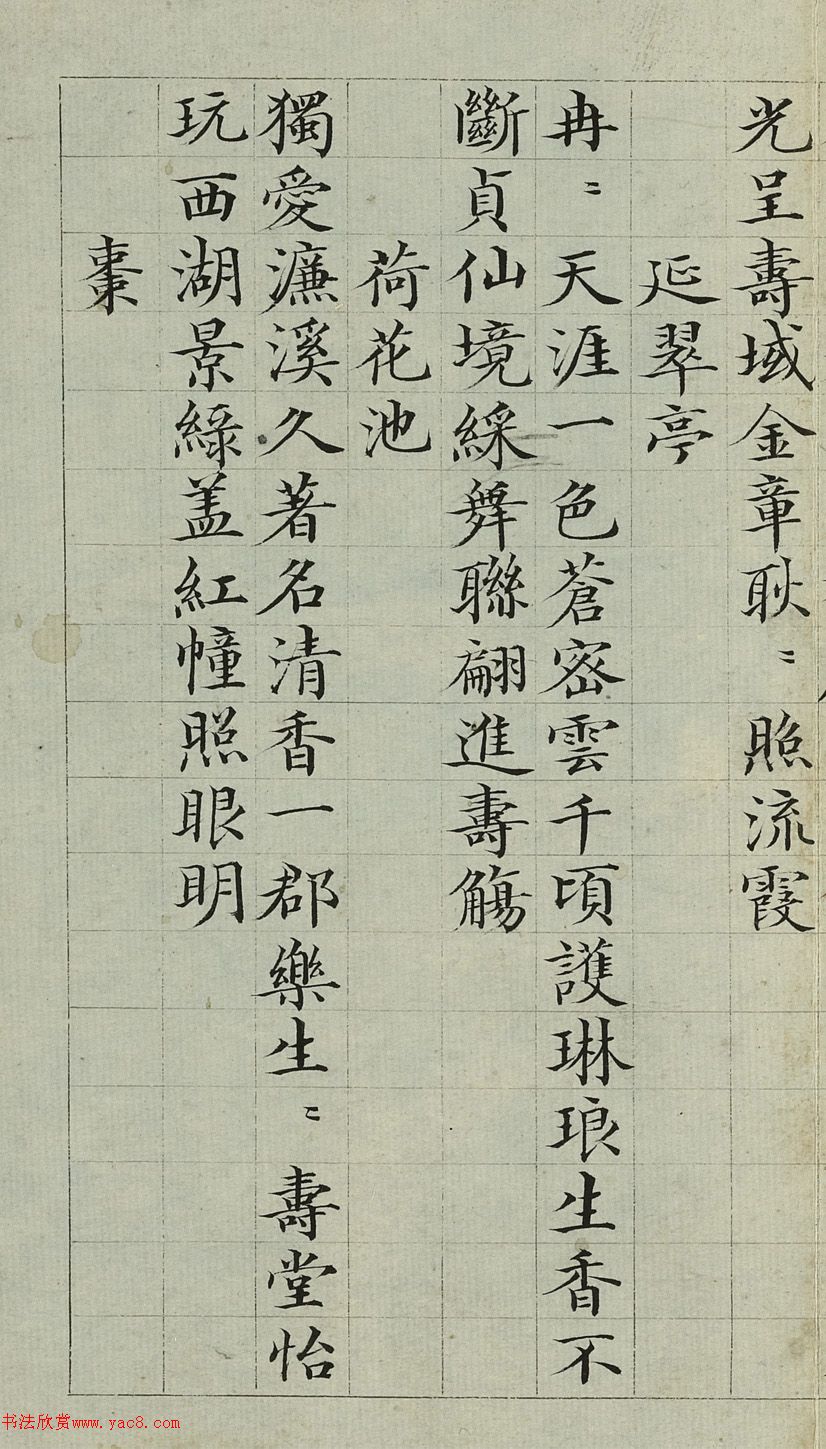 光呈壽域金章耿〻照流霞
延翠亭
冉〻天涯一色蒼密雲千頃護琳琅生香不
斷貞仙境綵舞聯翩進壽觴
荷花池
獨愛濂溪久著名清香一郡樂生〻壽堂怡
玩西湖景綠盖紅幢照眼明
棗
书法欣赏www.yac8.com